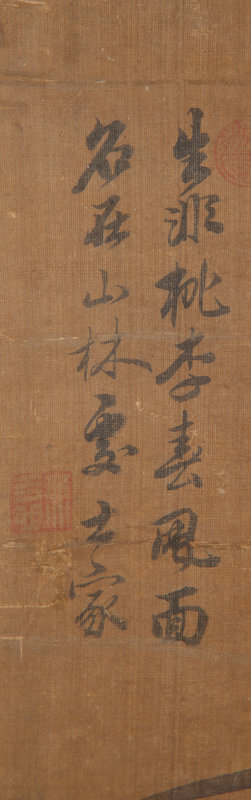 生非桃李春風面
名在山林處士家